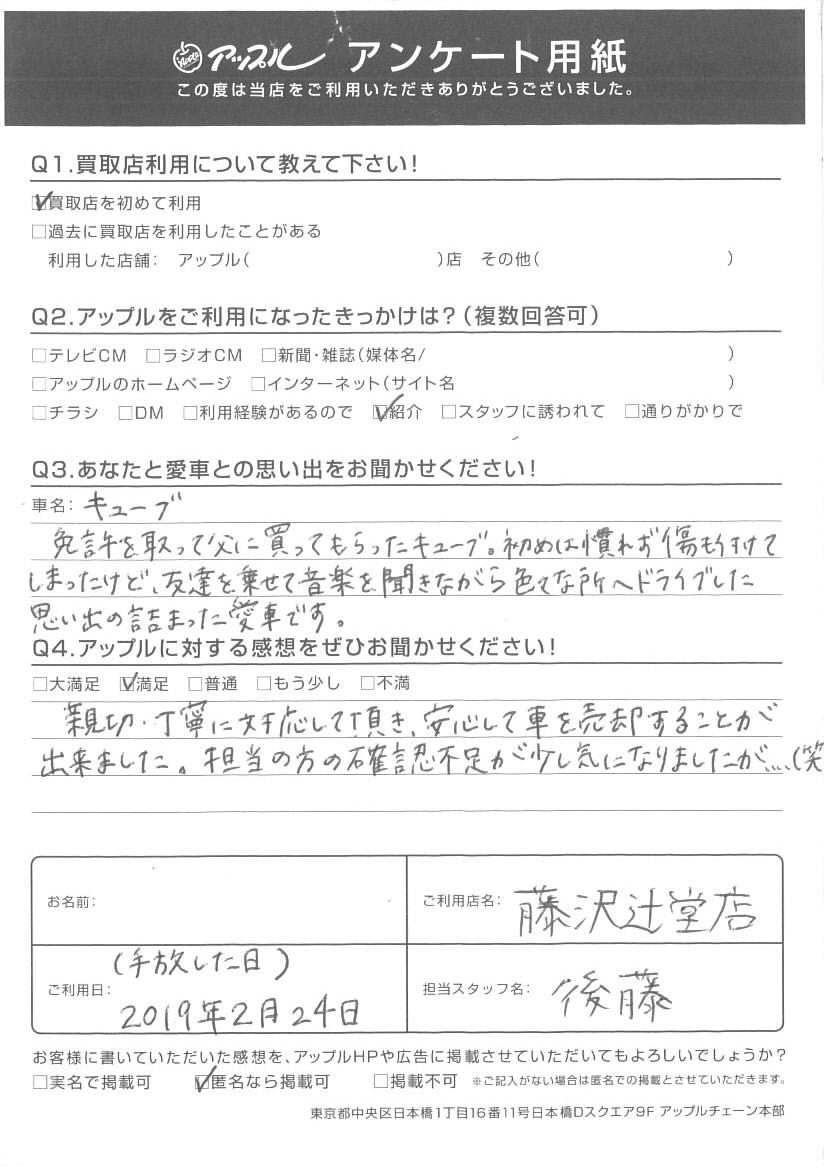 Apple アップル アンケート用紙
この度は当店をご利用いただきありがとうございました。
Q1.買取店利用について教えて下さい!
☑買取店を初めて利用
□過去に買取店を利用したことがある
利用した店舗: アップル( )店 その他( )
Q2.アップルをご利用になったきっかけは?(複数回答可)
□テレビCM □ラジオCM □新聞・雑誌(媒体名/ )
□アップルのホームページ □インターネット(サイト名 )
□チラシ □DM □利用経験があるので ☑紹介 □スタッフに誘われて □通りがかりで
Q3.あなたと愛車との思い出をお聞かせください!
車名: キューブ
免許を取って父に買ってもらったキューブ。初めは慣れず傷も付けて
しまったけど、友達を乗せて音楽を聞きながら色々な所へドライブした
思い出の詰まった愛車です。
Q4.アップルに対する感想をぜひお聞かせください!
□大満足 ☑満足 □普通 □もう少し □不満
親切・丁寧に対応して頂き、安心して車を売却することが
出来ました。担当の方の確認不足が少し気になりましたが....(笑
お名前:
ご利用店名: 藤沢辻堂店
(手放した日)
ご利用日: 2019年2月24日
担当スタッフ名: 後藤
お客様に書いていただいた感想を、アップルHPや広告に掲載させていただいてもよろしいでしょうか?
□実名で掲載可 ☑匿名なら掲載可 □掲載不可 ※ご記入がない場合は匿名での掲載とさせていただきます。
東京都中央区日本橋1丁目16番11号日本橋Dスクエア9F アップルチェーン本部